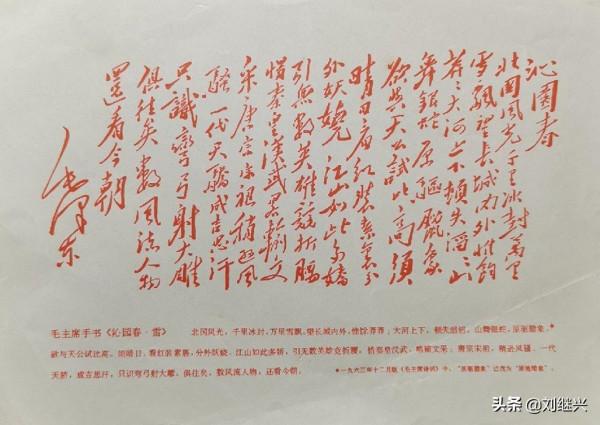 沁園春
北國風光千里冰封萬里
雪飄望長城内外惟餘
莽莽大河上下頓失滔滔山
舞銀蛇原驅臘象
欲與天公試比高須
晴日看紅裝素裹分
外妖嬈江山如此多嬌
引無數英雄競折腰
惜秦皇漢武略輸文
采唐宗宋祖稍遜風
騷一代天驕成吉思汗
只識彎弓射大雕
俱往矣數風流人物
還看今朝
毛泽东
毛主席手书《沁园春·雪》 北国风光，千里冰封，万里雪飘。望长城内外，惟馀莽莽；大河上下，顿失滔滔。山舞银蛇，原驱腊象，*
欲与天公试比高。须晴日，看红装素裹，分外妖娆。江山如此多娇，引无数英雄竞折腰。惜秦皇汉武，略输文采；唐宗宋祖，稍逊风骚。一代
天骄，成吉思汗，只识弯弓射大雕。俱往矣，数风流人物，还看今朝。 *一九六三年十二月版《毛主席诗词》中，“原驱腊象”已改为“原驰蜡象”。
头条 @刘继兴